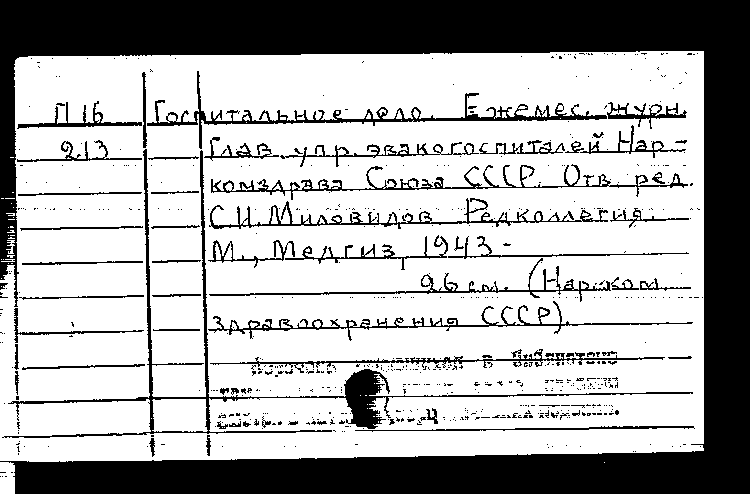 П 16 Госпитальное дело. Ежемес. журн.
213 Глав. упр. эвакогоспиталей Нар-
комздрава Союза СССР. Отв. ред.
С.И. Миловидов Редколлегия.
М., Медгиз, 1943-
26 см. (Нар. ком.
здравоохранения СССР).
в Библиотеке